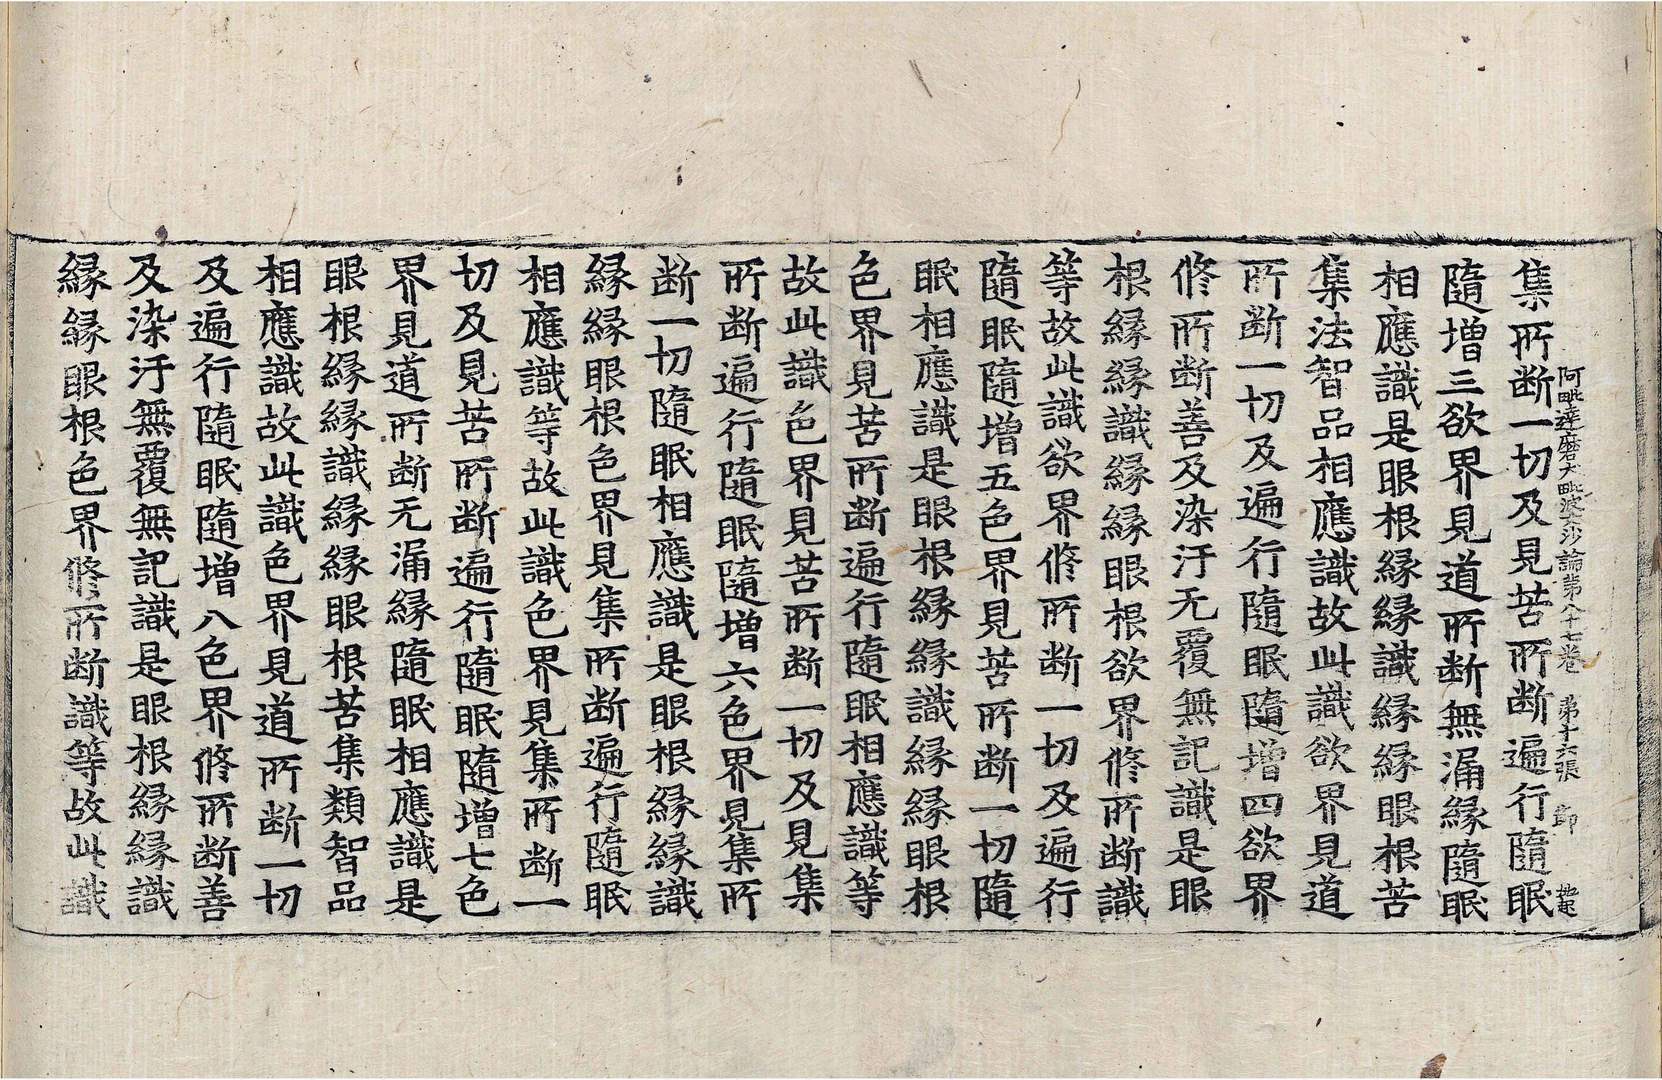 阿毗達磨大毗婆沙論第八十七卷　第十六張　節
集所断一切及見苦所断遍行隨眠
隨增三欲界見道所断無漏緣隨眠
相應識是眼根緣緣識緣緣眼根苦
集法智品相應識故此識欲界見道
所断一切及遍行隨眠隨增四欲界
修所断善及染汙无覆無記識是眼
根緣緣識緣緣眼根欲界修所断識
等故此識欲界修所断一切及遍行
隨眠隨增五色界見苦所断一切隨
眠相應識是眼根緣緣識緣緣眼根
色界見苦所断遍行隨眠相應識等
故此識色界見苦所断一切及見集
所断遍行隨眠隨增六色界見集所
断一切隨眠相應識是眼根緣緣識
緣緣眼根色界見集所断遍行隨眠
相應識等故此識色界見集所断一
切及見苦所断遍行隨眠隨增七色
界見道所断无漏緣隨眠相應識是
眼根緣緣識緣緣眼根苦集類智品
相應識故此識色界見道所断一切
及遍行隨眠隨增八色界修所断善
及染汙無覆無記識是眼根緣緣識
緣緣眼根色界修所断識等故此識